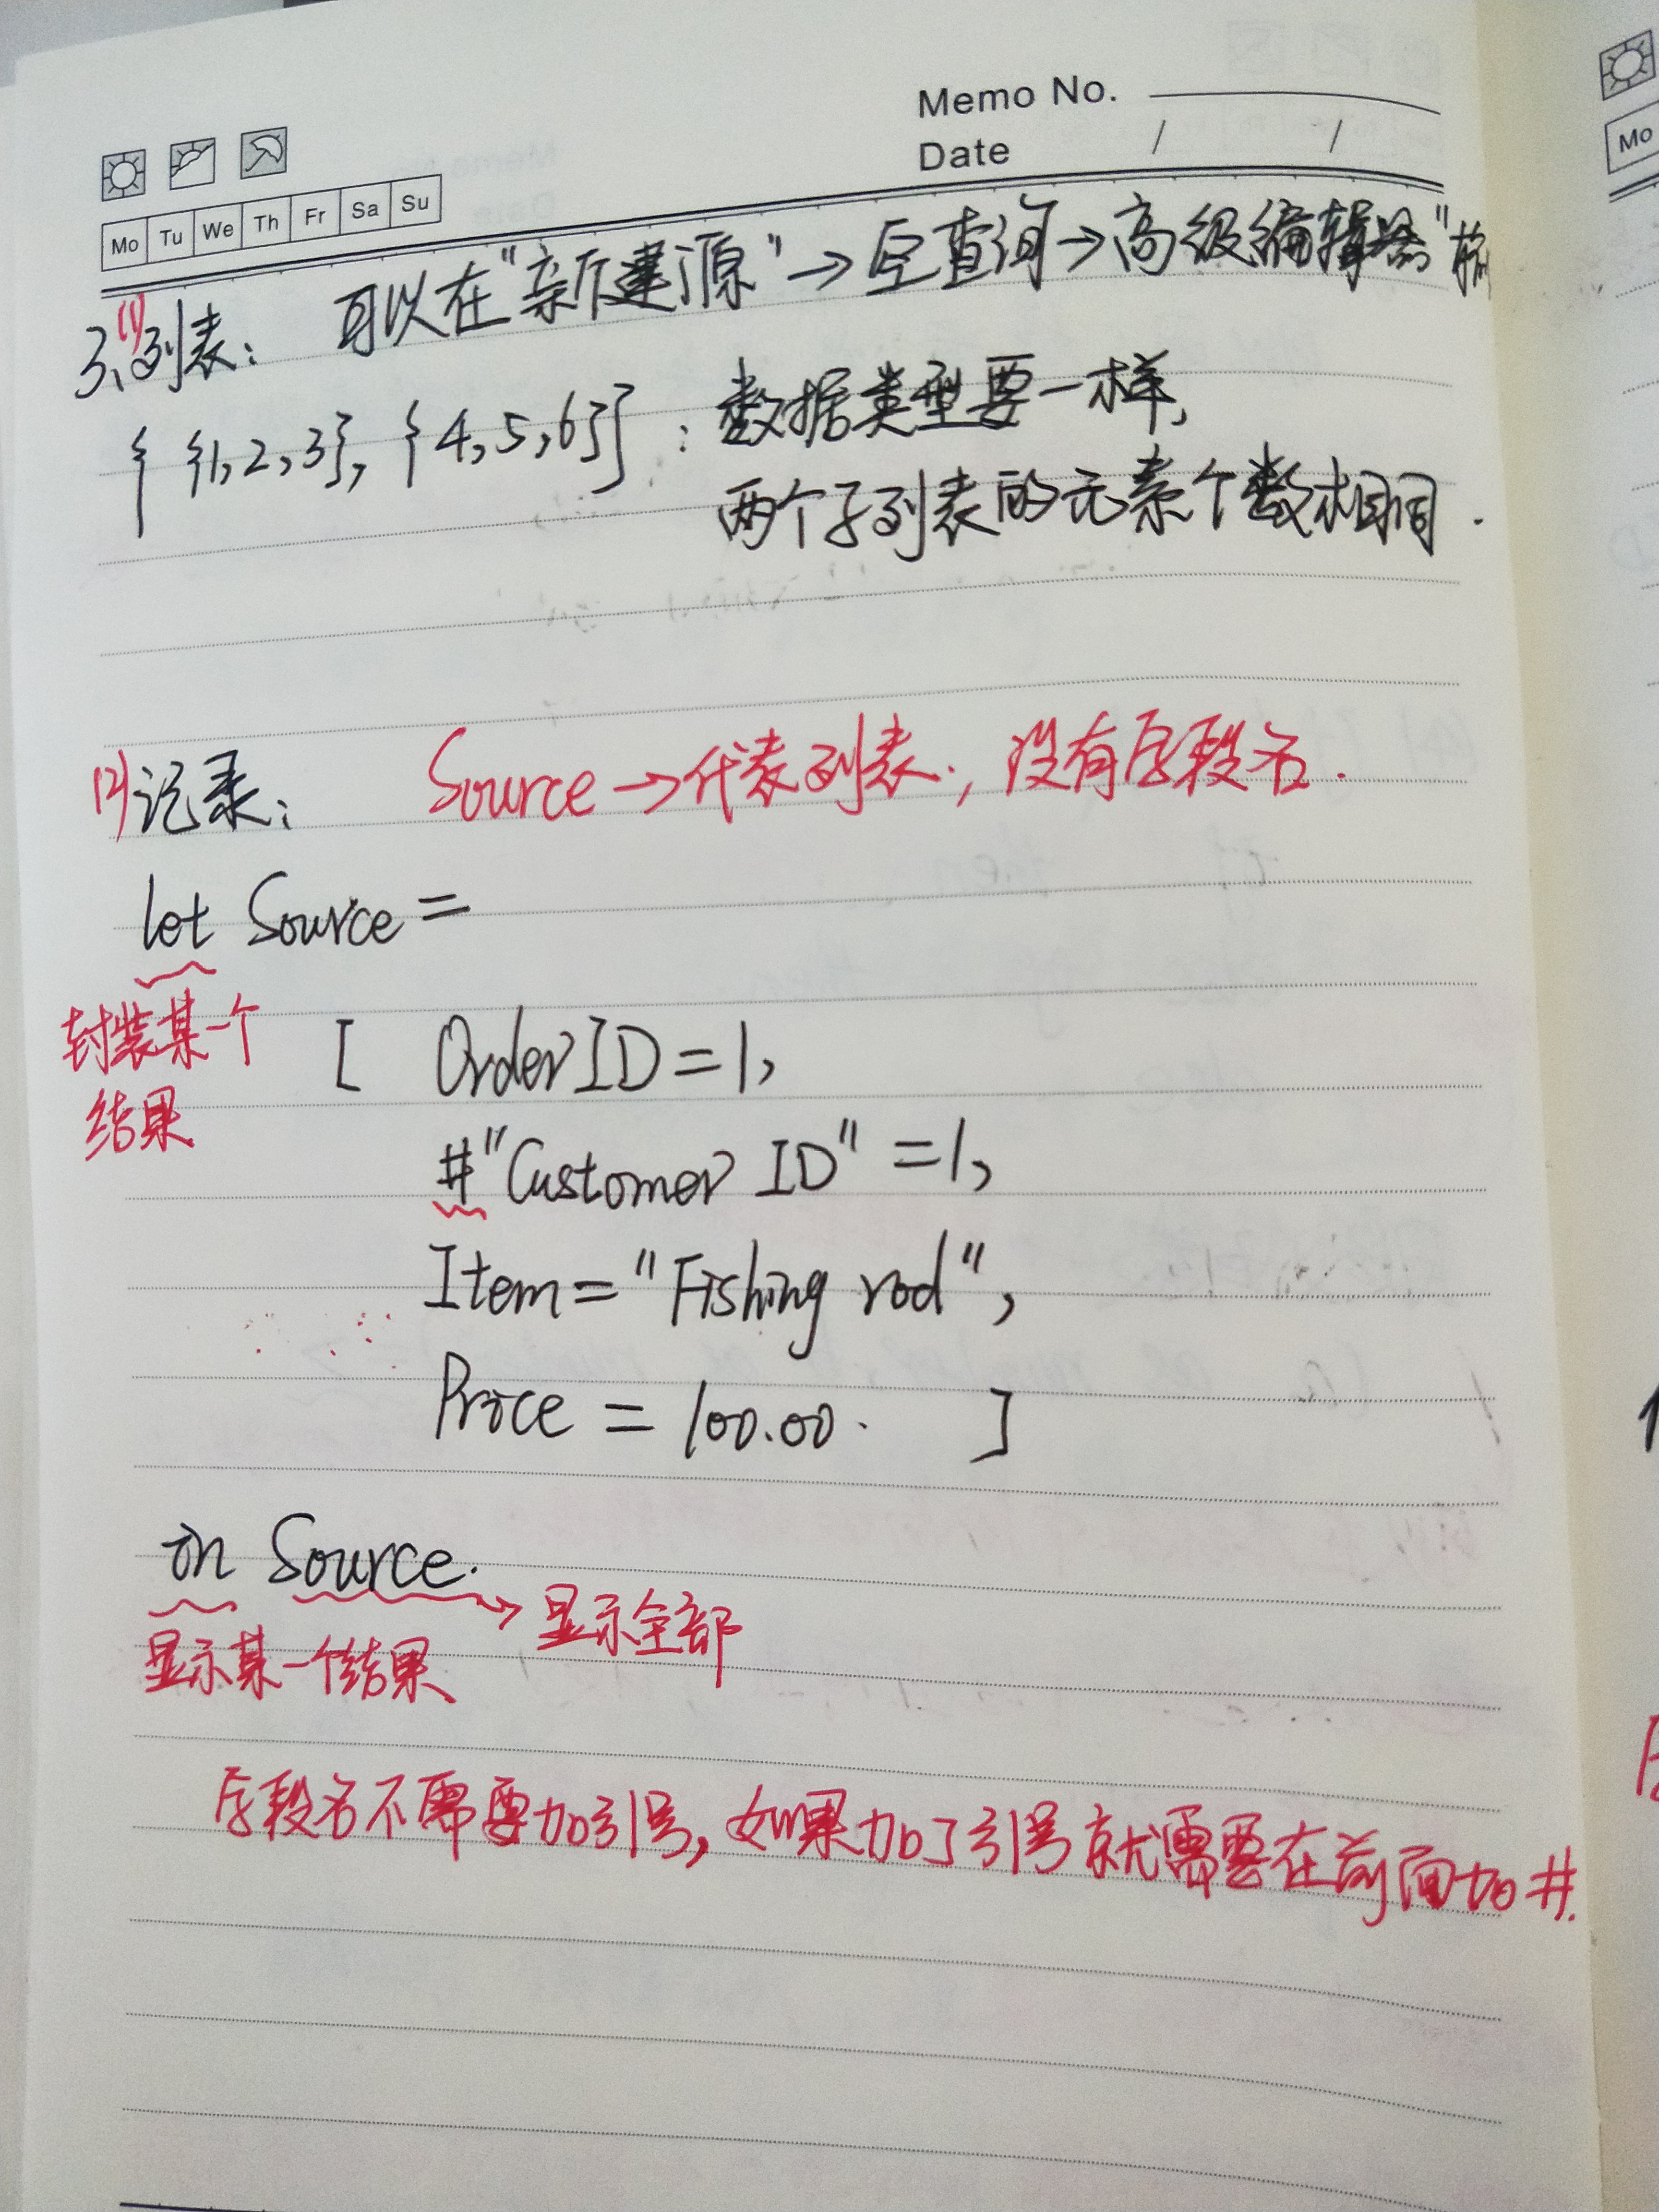 Memo No.
Date / /
Mo Tu We Th Fr Sa Su
Mo
3、(1)列表： 可以在"新建源"→空查询→高级编辑器"
{ {1,2,3}, {4,5,6}} : 数据类型要一样,
两个子列表的元素个数相同.
(2)记录： Source→代表列表., 没有字段名.
let Source =
封装某一个
结果
[ OrderID=1,
#"Customer ID" =1,
Item="Fishing rod",
Price = 100.00. ]
in Source.
→显示全部
显示某一个结果
字段名不需要加引号, 如果加了引号就需要在前面加#.